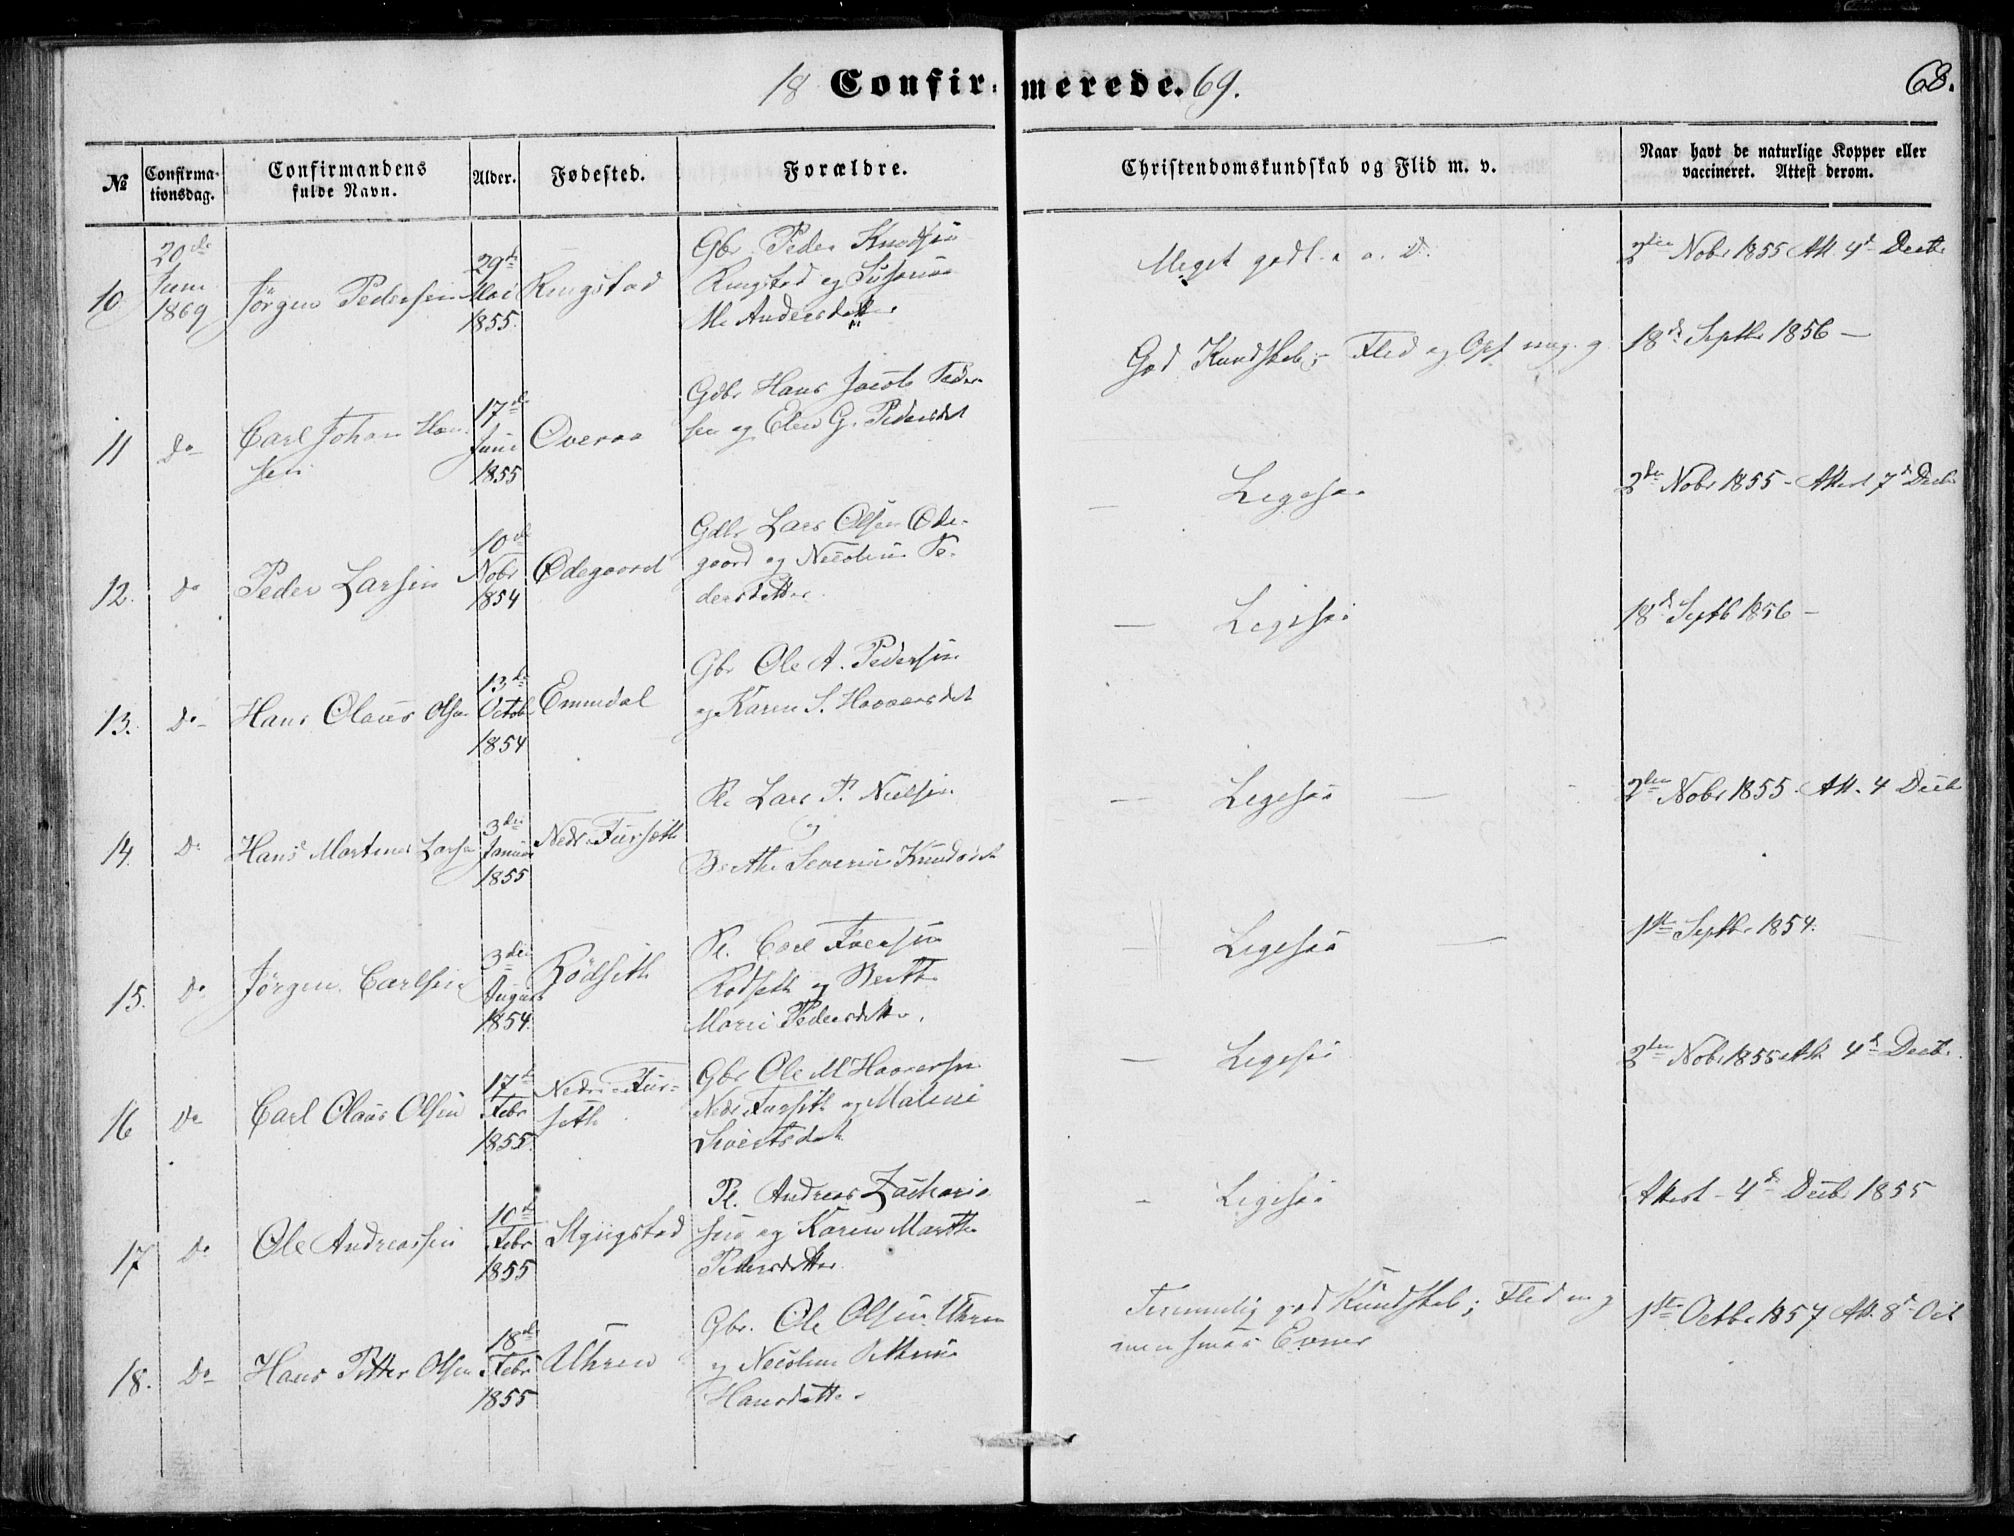 18 Confirmerede. 69.
68.
№
Confirmationsdag.
Confirmandens fulde Navn.
Alder.
Fødested.
Forældre.
Christendomskundskab og Flid m. v.
Naar havt de naturlige Kopper eller vaccineret. Attest derom.
10.
20de Juni 1869
Jörgen Pedersen
29de Mai 1855.
Ringstad
Gbr Peder Knudsen
Ringstad og Susanna
M. Andersdatter
Meget godt
2den Nobr 1855 Att. 4de Decbr
11
Do
Carl Johan Hansen
17de Juni 1855
Overaa
Gdbr Hans Jacob Pedersen
og Elen G. Pedersdat
God Kundskab; Flid og Opf. meg. g
18de Septbr 1856 —
12.
Do
Peder Larsen
10de Nobr 1854
Ødegaard
Gdbr Lars Olsen Ødegaard
og Nicoline Pedersdatter
— Ligesaa
2den Nobr 1855 - Attest 7de Decbr
13.
Do
Hans Olaus Olsen
13de Octob 1854
Emmdal
Gbr Ole A. Pedersen
og Karen S. Havarsdat
— Ligesaa
18de Septb 1856 —
14.
Do
Hans Martinus Larsen
3die Januar 1855
Nedr. Furseth
Pl. Lars P. Nielsen
og
Berthe Severine Knudsdat
— Ligesaa —
2den Nobr 1855. Att. 4 Decbr
15.
Do
Jörgen Carlsen
3die August 1854
Rödseth
Pl. Carl Iversen
Rödseth og Berthe
Marie Pedersdatter.
— Ligesaa —
1ste Septbr 1854.
16
Do
Carl Olaus Olsen
17de Febr 1855.
Nedre Furseth
Gbr Ole M Havarsen
Nedr Furseth og Maline
Sivertsdat
— Ligesaa
2den Nobr 1855 Att. 4de Decbr.
17
Do
Ole Andreassen
10de Febr 1855
Pl. Andreas Zachariasen
og Karen Marthe
Pedersdatter
- Ligesaa
Attest - 4de Decbr 1855
18.
Do
Hans Petter Olsen
18de Febr 1855
Uthren
Gbr. Ole Olsen Uthren
og Nicoline
Hansdatter
Temmelig god Kundskab; Flid m g
men smaa Evner
1ste Octbr 1857 Att. 8de Oct